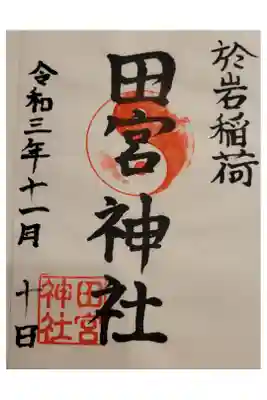 於岩稲荷
田宮神社
令和三年十一月 十日
田宮
神社